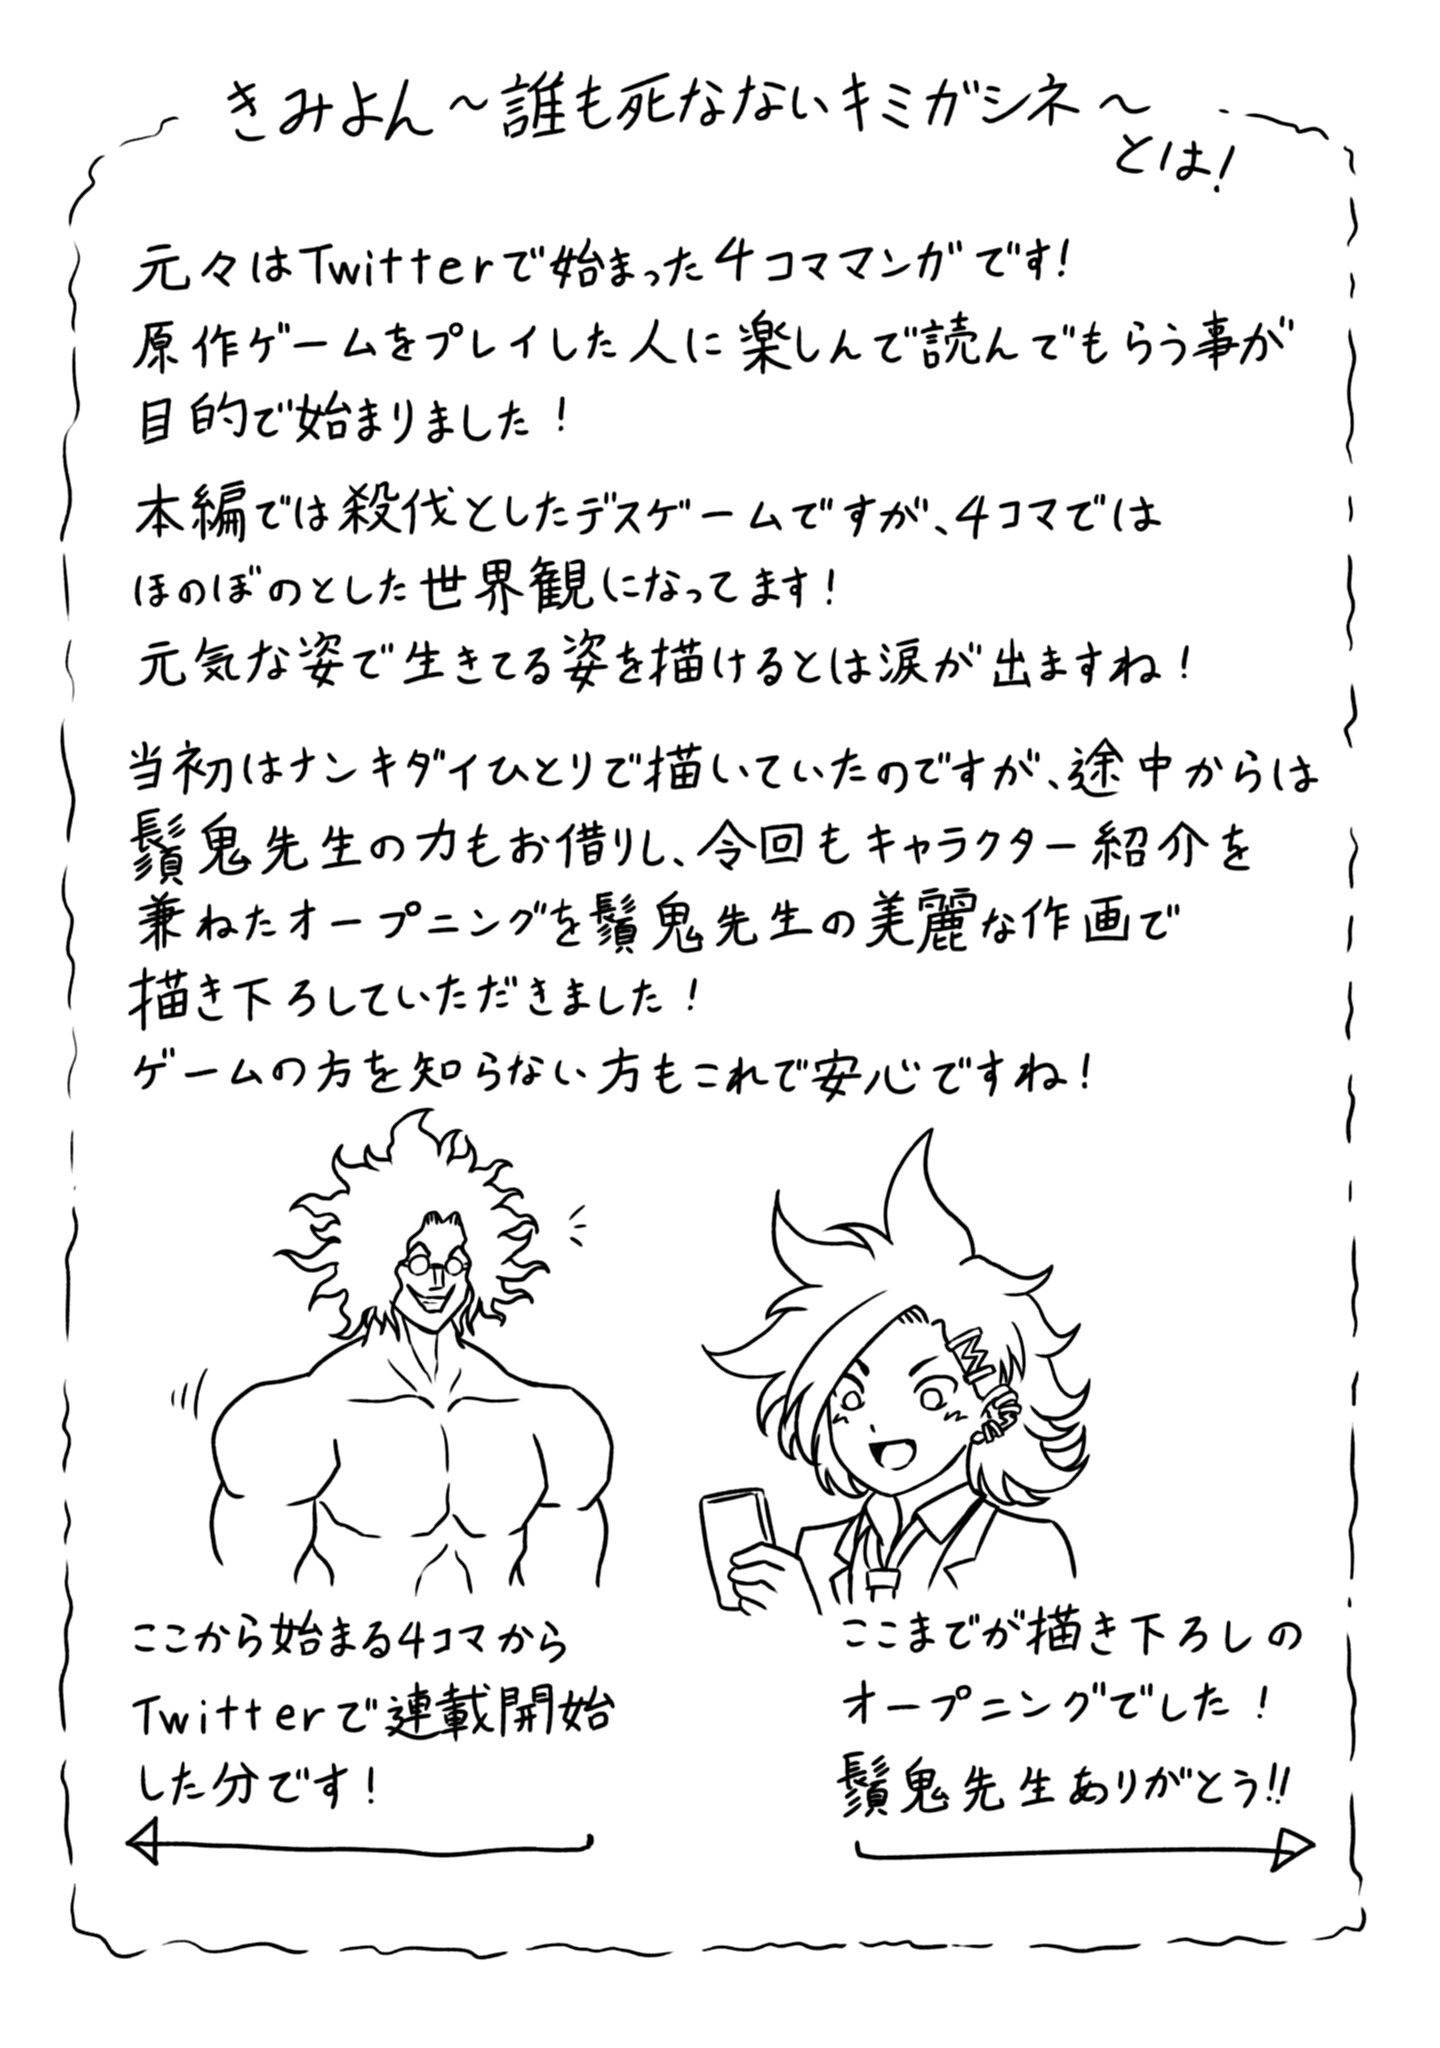 きみよん〜誰も死なないキミガシネ〜
とは!
元々はTwitterで始まった4コママンガです!
原作ゲームをプレイした人に楽しんで読んでもらう事が
目的で始まりました!
本編では殺伐としたデスゲームですが、4コマでは
ほのぼのとした世界観になってます!
元気な姿で生きてる姿を描けるとは涙が出ますね!
当初はナンキダイひとりで描いていたのですが、途中からは
鬚鬼先生の力もお借りし、今回もキャラクター紹介を
兼ねたオープニングを鬚鬼先生の美麗な作画で
描き下ろしていただきました!
ゲームの方を知らない方もこれで安心ですね!
ここまでが描き下ろしの
オープニングでした!
鬚鬼先生ありがとう!!
ここから始まる4コマから
Twitterで連載開始
した分です!